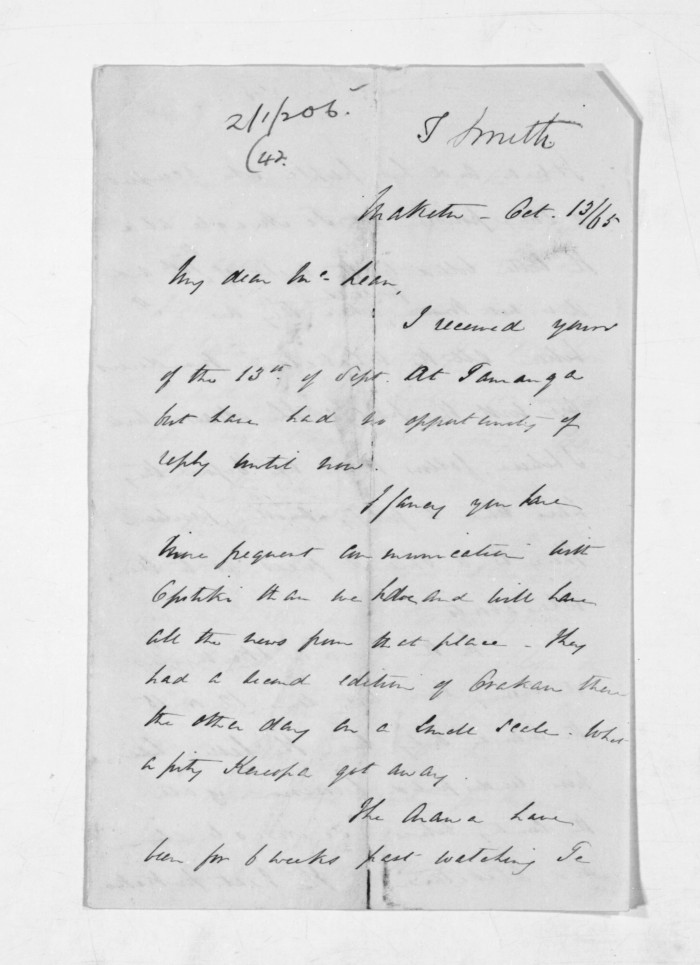 2/1/206.
(42.
T Smith
Maketu - Oct. 13/65
My dear McLean,
I received yours
of the 13th of Sept. at Tauranga
but have had no opportunity of
reply until now.
I fancy you have
more frequent communication with
Opotiki than we have and will have
all the news from that place - They
had a second edition of Orakau there
the other day on a small scale. What
a pity Kereopa got away.
The Arawa have
been for 6 weeks past watching Te